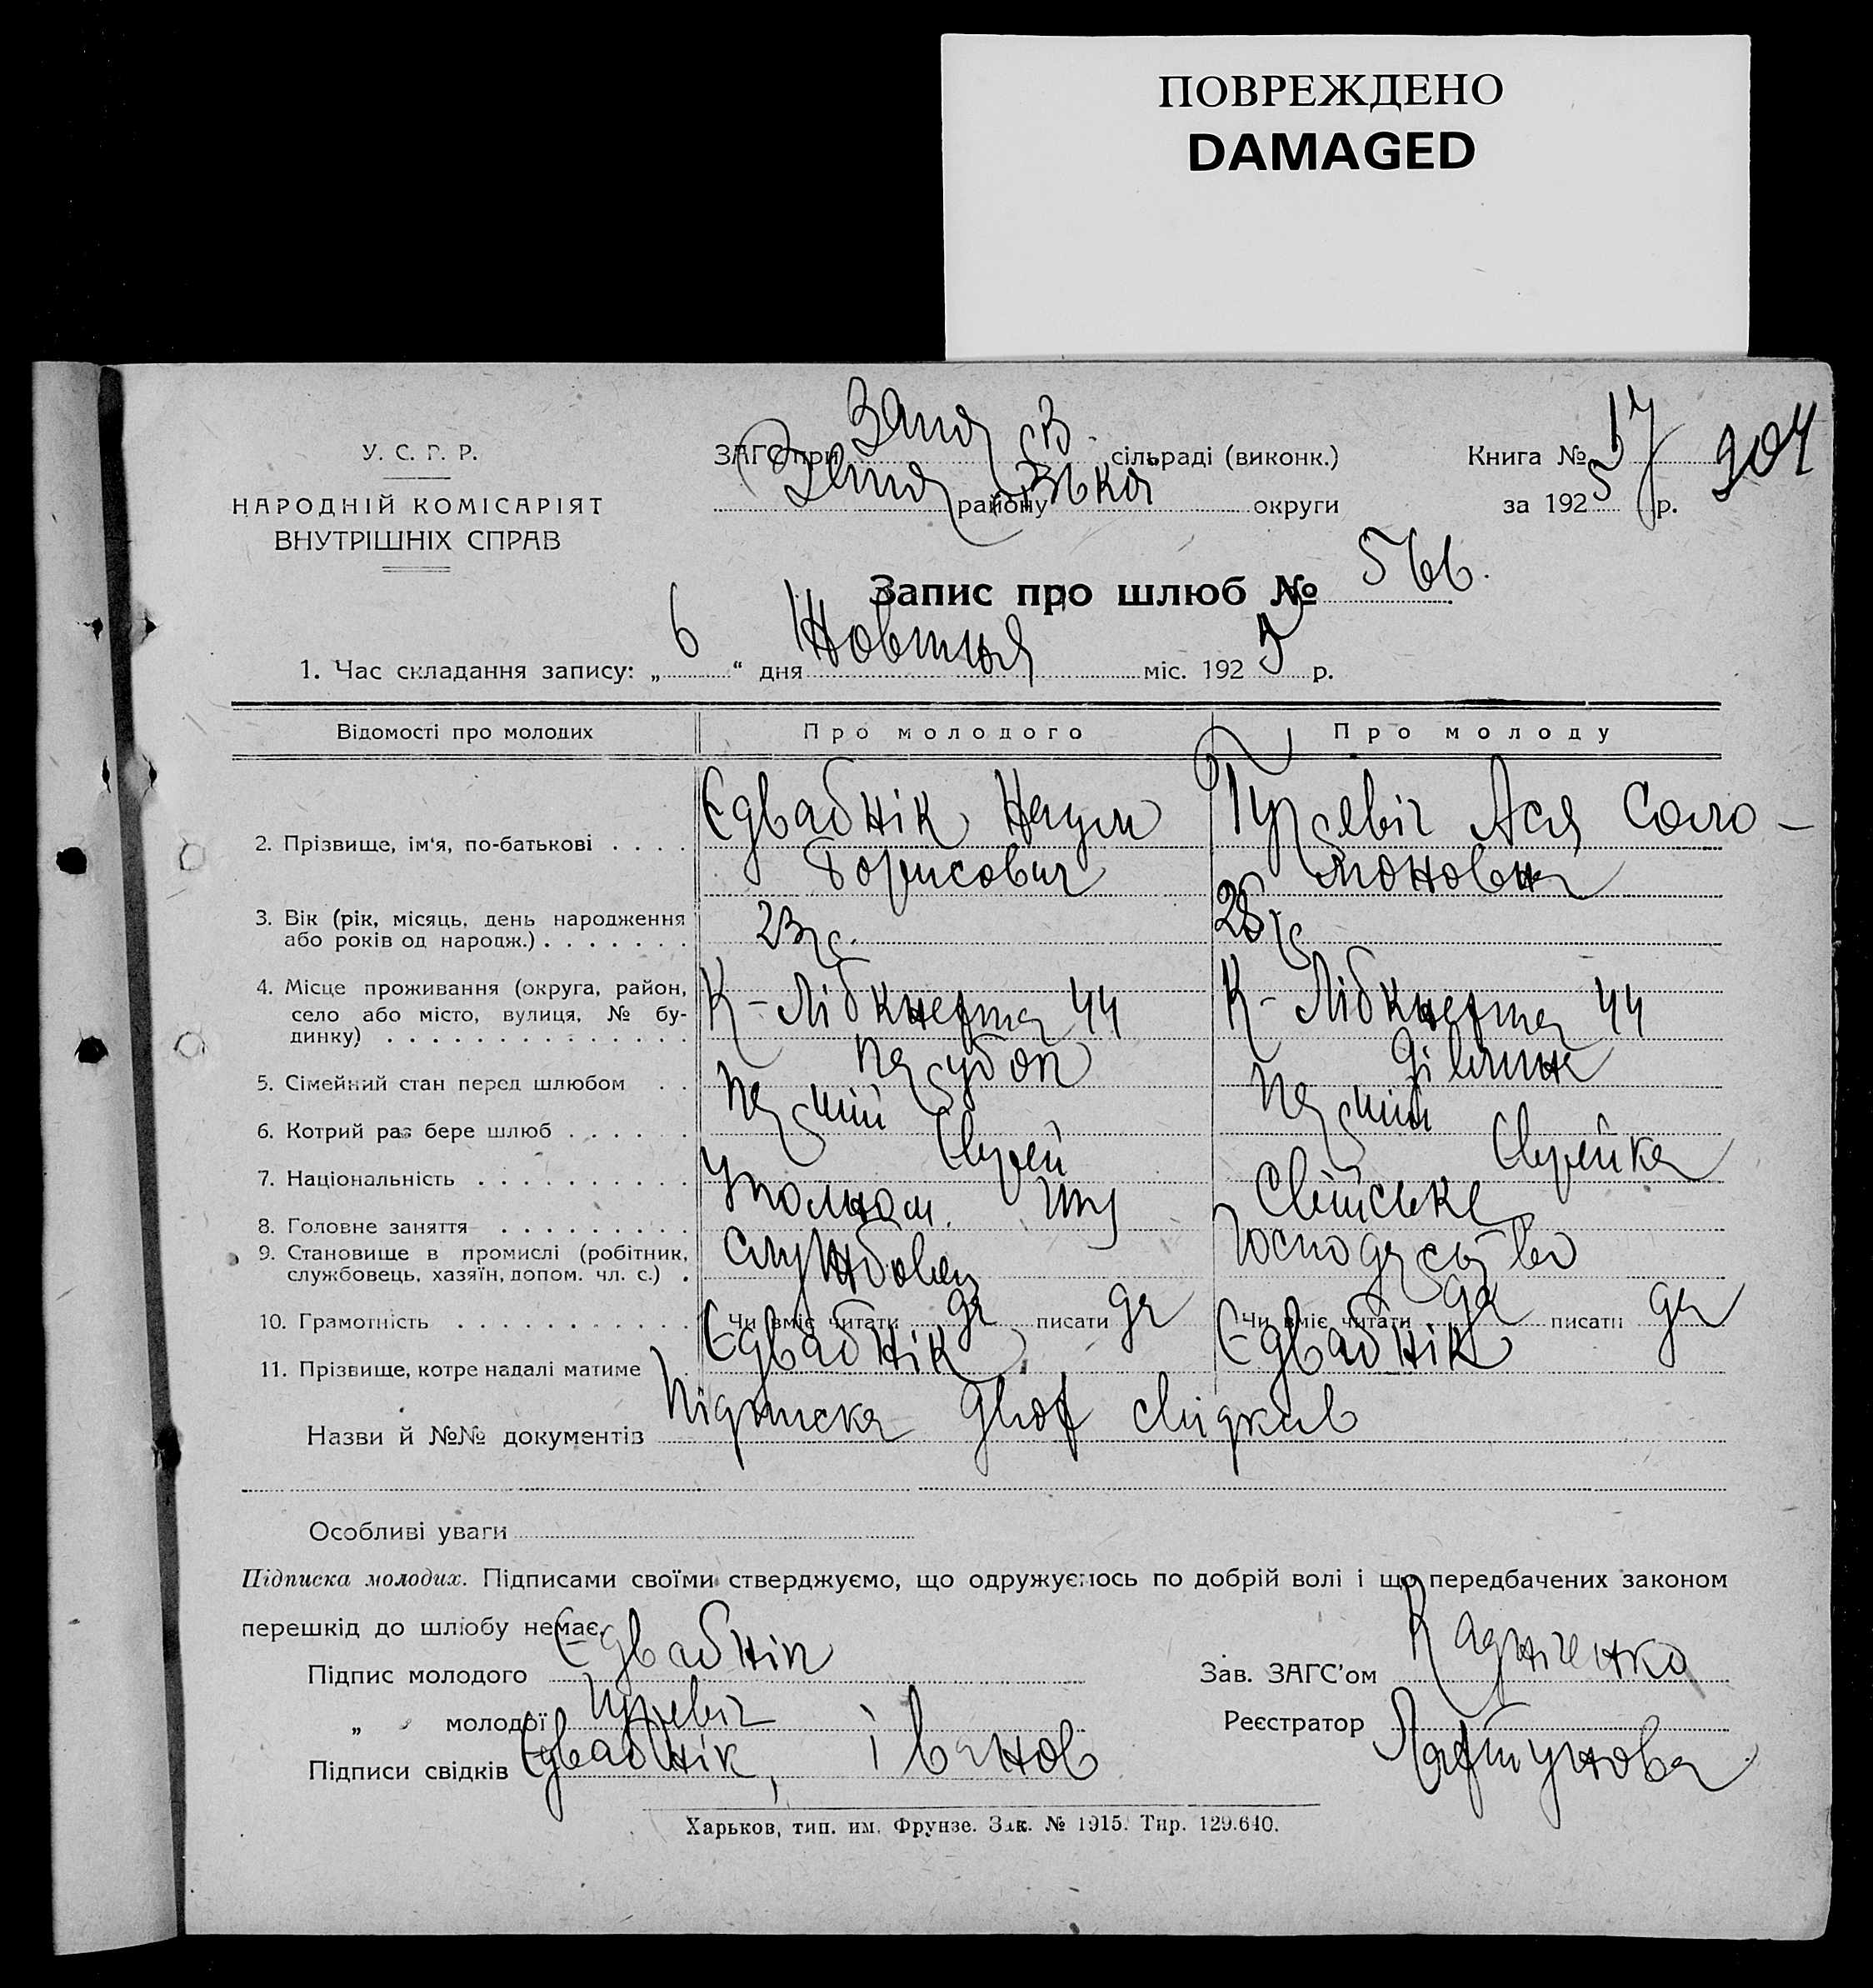 ПОВРЕЖДЕНО
DAMAGED
У. С. Р. Р.
НАРОДНІЙ КОМІСАРІЯТ
ВНУТРІШНІХ СПРАВ
ЗАГС при сільраді (виконк.)
району округи
Книга № 17 204
за 1925 р.
Запис про шлюб № 566.
1. Час складання запису: „ 6 “ дня Жовтня міс. 1925 р.
Відомості про молодих Про молодого Про молоду
2. Прізвище, ім'я, по-батькові . . . . Єдвабнік Наум Гуревіч Ася Соло-
Борисович моновна
3. Вік (рік, місяць, день народження
або років од народж.) . . . . . . . 23 р. 28 р
4. Місце проживання (округа, район,
село або місто, вулиця, № бу-
динку) . . . . . . . . . . . . . . К-Лібкнехта 44 К-Лібкнехта 44
5. Сімейний стан перед шлюбом . . парубок дівчина
6. Котрий раз бере шлюб . . . . . . перший перший
7. Національність . . . . . . . . . . Єврей Єврейка
8. Головне заняття . . . . . . . . . Уполном. Свійське
9. Становище в промислі (робітник,
службовець, хазяїн, допом. чл. с.) . службовец господарство
10. Грамотність . . . . . . . . . . . Чи вміє читати да писати да Чи вміє читати да писати да
11. Прізвище, котре надалі матиме Єдвабнік Єдвабнік
Назви й №№ документів Підписка двох свідків
Особливі уваги
Підписка молодих. Підписами своїми стверджуємо, що одружуємось по добрій волі і що передбачених законом
перешкід до шлюбу немає.
Підпис молодого Єдвабнік Зав. ЗАГС'ом
„ молодої Гуревіч Реєстратор
Підписи свідків Єдвабнік, Іванов
Харьков, тип. им. Фрунзе. Зак. № 1915. Тир. 129.640.